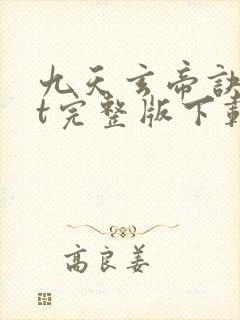 九天玄帝诀
t完整版下载
高良姜